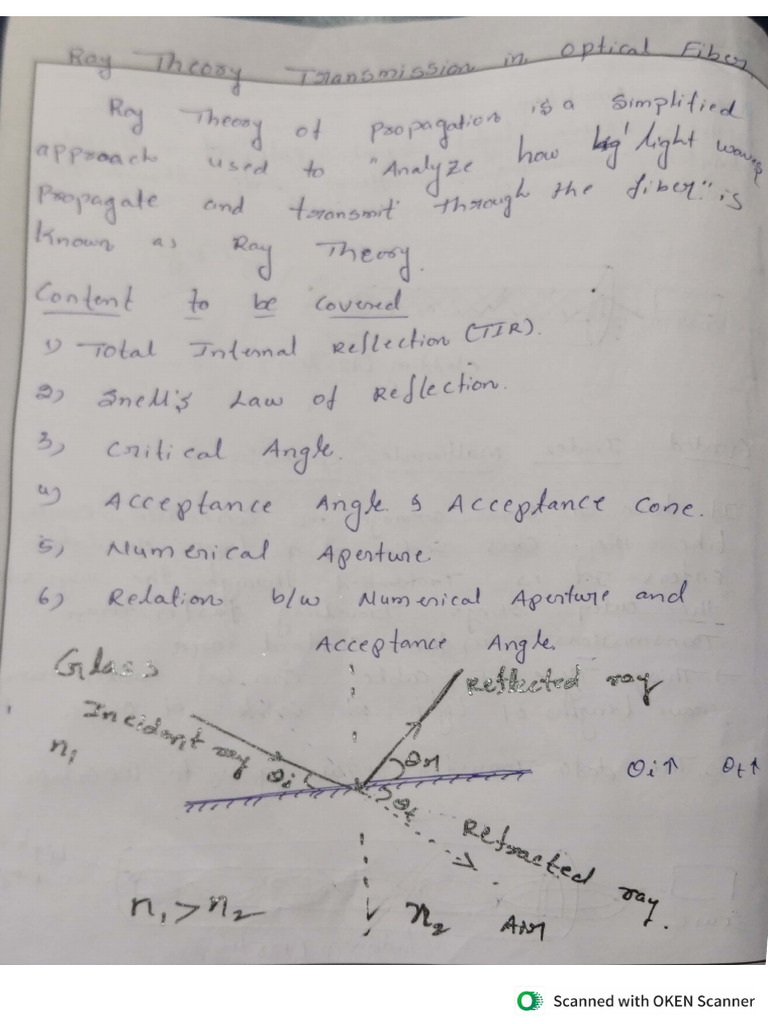 Ray Theory Transmission in Optical Fiber
Ray Theory of Propagation is a simplified
approach used to "Analyze how light waves
Propagate and transmit through the fiber." is
Known as Ray Theory.
Content to be covered
1) Total Internal Reflection (TIR).
2) Snell's Law of Reflection.
3) Critical Angle.
4) Acceptance Angle & Acceptance Cone.
5) Numerical Aperture.
6) Relation b/w Numerical Aperture and
Acceptance Angle.
Glass
Reflected ray
Incident ray
n₁
θi
θr
θi↑ θt↑
θt
Refracted ray.
n₁ > n₂
n₂
Air
Scanned with OKEN Scanner